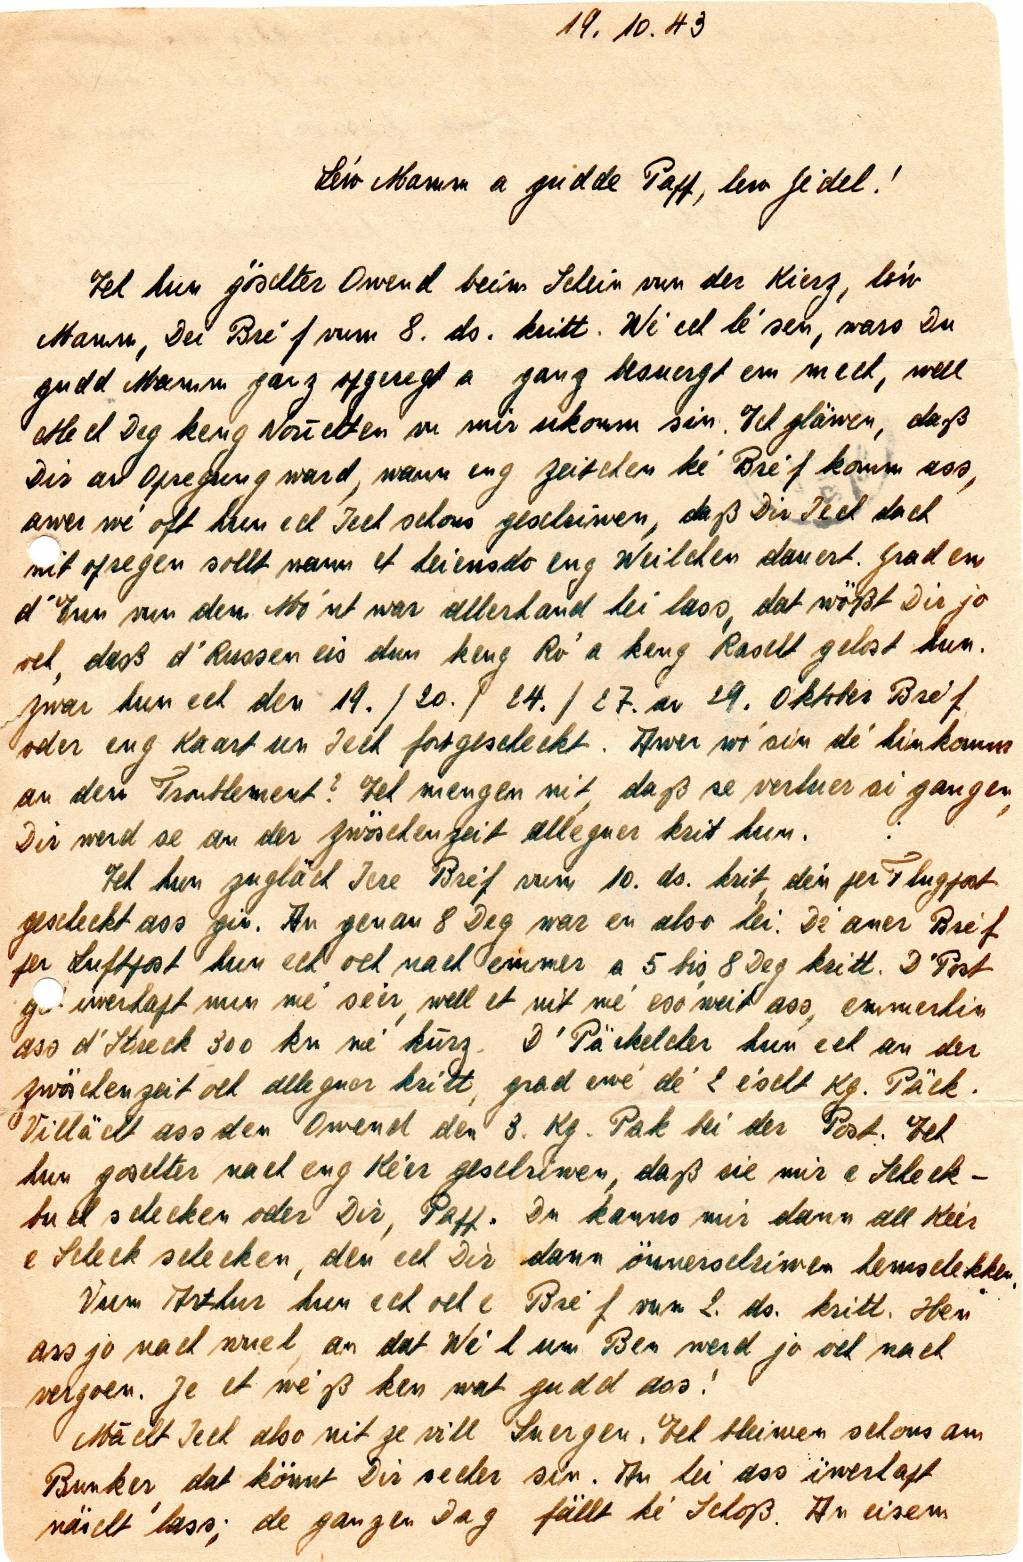 19. 10. 43
Léiw Mamm a gudde Papp, lew Jédel!
Ech hun göschter Owend beim Schein vun der Kierz, léiw
Mamm, Dei Bréf vum 8. ds. kritt. Wé ech lésen, wars Du
gudd Mamm ganz opgeregt a ganz besuergt em mech, well
Deg keng Noriichten vu mir ukomm sin. Ech gläwen, daß
Dir an Opregung ward, wann eng Zeitchen ké Bréf komm ass,
awer wé oft hun ech Iech schons geschriwen, daß Dir Iech dach
nit opregen sollt wann et heiansdo eng Weilchen dauert. Grad em
d'Enn vun dem Mónt war allerhand hei lass, dat wößt Dir jo
och, daß d'Russen eis dun keng Ró a keng Rascht gelost hun.
Zwar hun ech den 19. / 20. / 24. / 27. an 29. Oktober Bréf
oder eng Kaart un Iech fortgescheckt. Awer wó sin dé hinkomm
an dem Troublement? Ech mengen nit, daß se verluer si gangen,
Dir werd se an der Zwöschenzeit alleguer krit hun.
Ech hun zugläch Iere Bréf vum 10. ds. krit, dén per Flugpost
gescheckt ass gin. An genau 8 Deg war en also hei. Dé aner Bréf
per Luftpost hun ech och nach ëmmer a 5 bis 8 Deg kritt. D'Post
iwerhapt nun mé séier, well et nit mé esó weit ass, emmerhin
ass d'Streck 300 km mé kürz. D'Päckelcher hun ech an der
Zwöschenzeit och alleguer kritt, grad ewé dé 2 éischt Kg. Päck.
Villäicht ass den Owend den 3. Kg. Pak bei der Post. Ech
hun göschter nach eng Kéier geschriwen, daß sie mir e Scheck-
buch schecken oder Dir, Papp. Du kanns mir dann all Kéier
e Scheck schecken, den ech Dir dann önnerschriwen hemschekken.
Vum Arthur hun ech och e Bréf vum 2. ds. kritt. Hen
ass jo nach wuel, an dat Wéh um Ben werd jo och nach
vergoen. Je et wéß ken wat gudd ass!
Mächt Iech also nit ze vill Suergen. Ech bleiwen schons am
Bunker, dat könnt Dir secher sin. An hei ass iwerhapt
näischt lass; de ganzen Dag fällt ké Schoß. An eisem